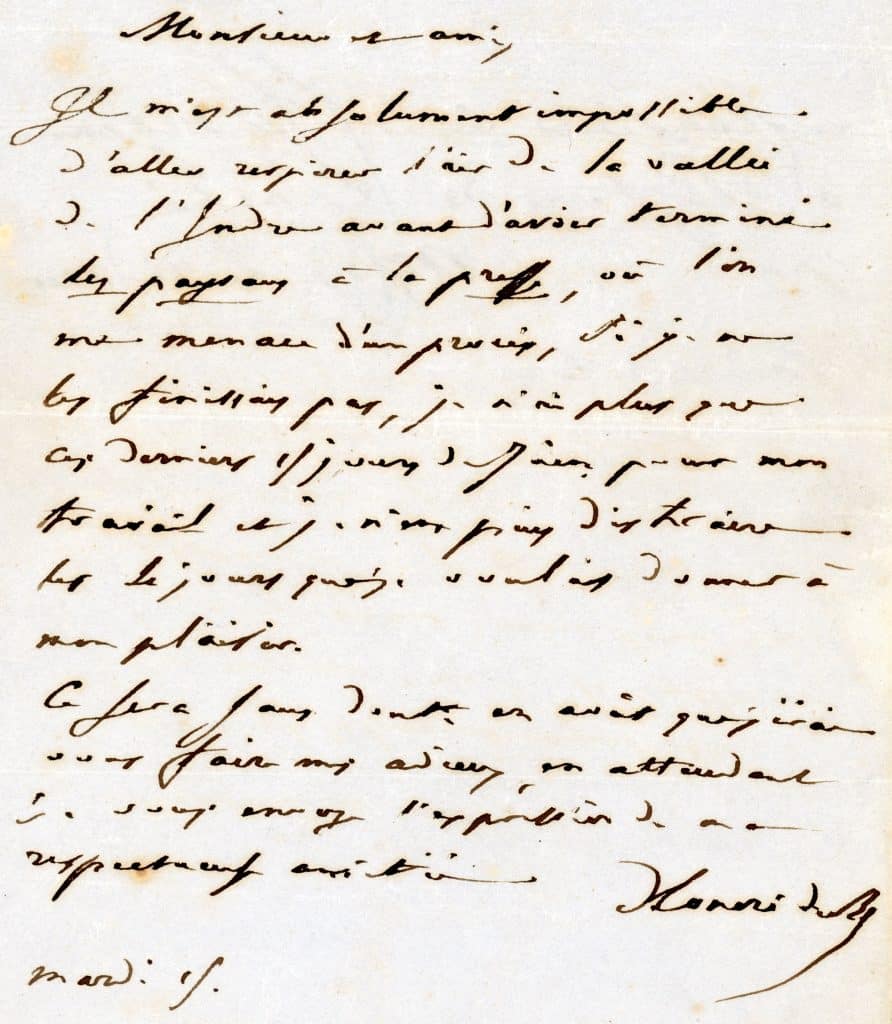 Monsieur et ami,
Il m'est absolument impossible
d'aller respirer l'air de la vallée
de l'Indre avant d'avoir terminé
les paysans à la presse, où l'on
me menace d'un procès, si je ne
les finissais pas, je n'ai plus que
ces derniers 15 jours de pour mon
travail et je n'en puis distraire
les jours que je voulais donner à
mon plaisir.
Ce sera sans doute en août que j'irai
vous faire mes adieux, en attendant
je vous envoye l'expression de ma
respectueuse amitié
Honoré de B
mardi 15.